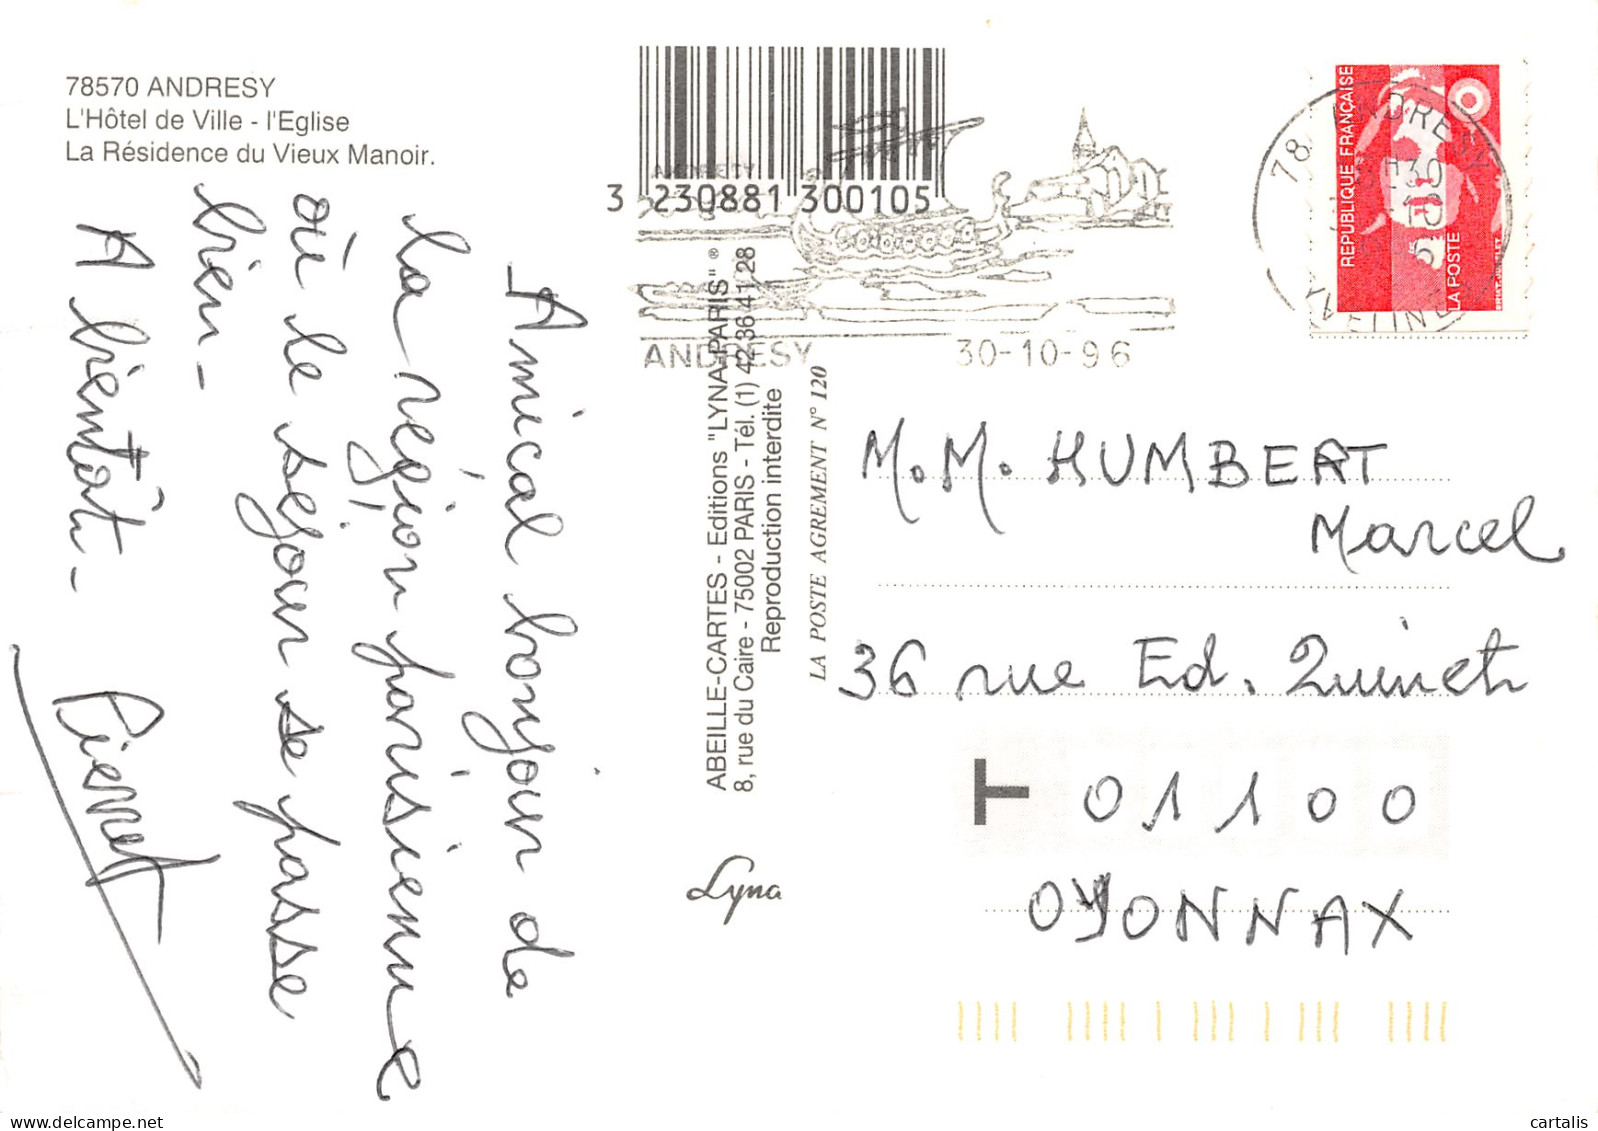 78570 ANDRESY
L'Hôtel de Ville - l'Eglise
La Résidence du Vieux Manoir.
Amical bonjour de
la région parisienne
où le sejour se passe
bien -
A bientôt -
Pierrot
3 230881 300105
ANDRESY
ANDRESY 30-10-96
ABEILLE-CARTES - Editions "LYNA-PARIS" ®
8, rue du Caire - 75002 PARIS - Tél. (1) 42 36 41 28
Reproduction interdite
LA POSTE AGREMENT N° 120
Lyna
REPUBLIQUE FRANÇAISE
LA POSTE
78 ANDRESY
YVELINES
M. M. HUMBERT
Marcel
36 rue Ed. Quinet
T 01100
OYONNAX
cartalis